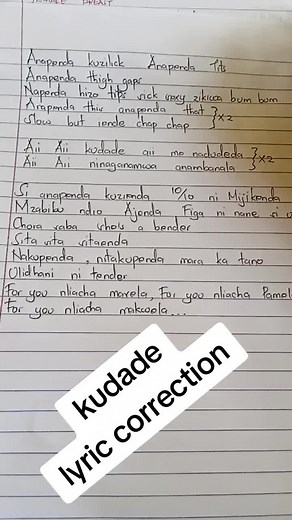 Anapenda kuzilick Anapenda Tits
Anapenda thigh gaps
Napenda hizo tips sick sexy zikiwa bum bum
Anapenda this anapenda that } x2
Slow but iende chap chap
Aii Aii kudade aii me nadudeda } x2
Aii Aii ninaganamwa anambanala
Si anapenda kuzienda 10/10 ni Mijikenda
Mzabibu ndio Ajenda Figa ni nane si
Chora saba shols a bender
Sita sita sitaenda
Nakupenda, nitakupenda mara ka tano
Ulidhani ni tender
For you nliacha marela, For you nliacha Pamel
For you nliacha makwela...
kudade
lyric correction